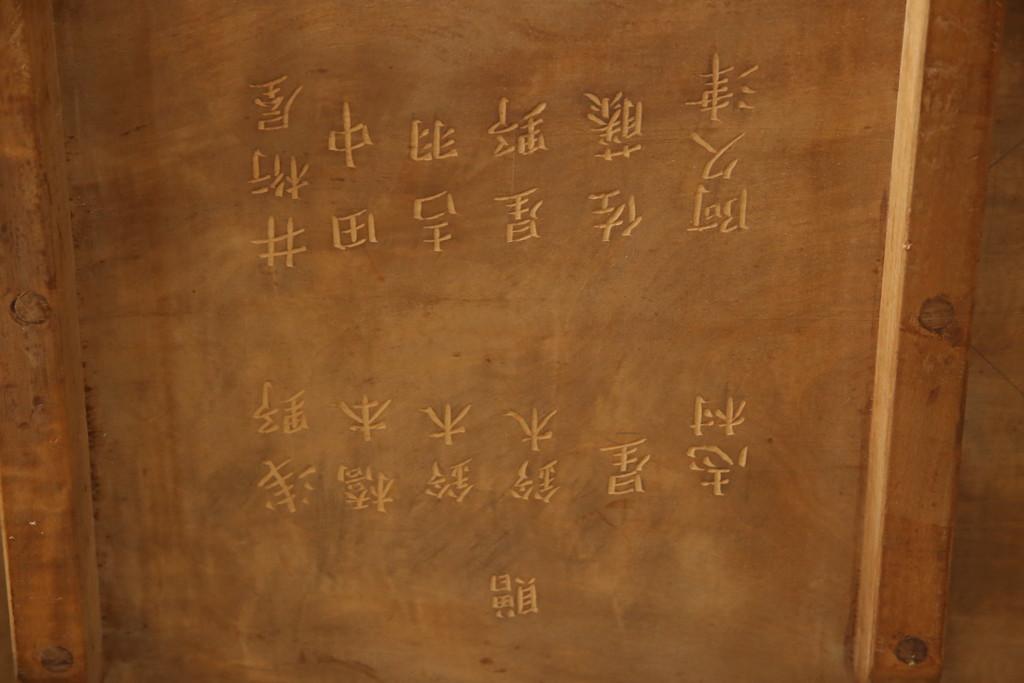 贈
浅野
橋本
鈴木
鈴木
星
志村
井桁屋
田中
吉羽
星野
佐藤
阿久津